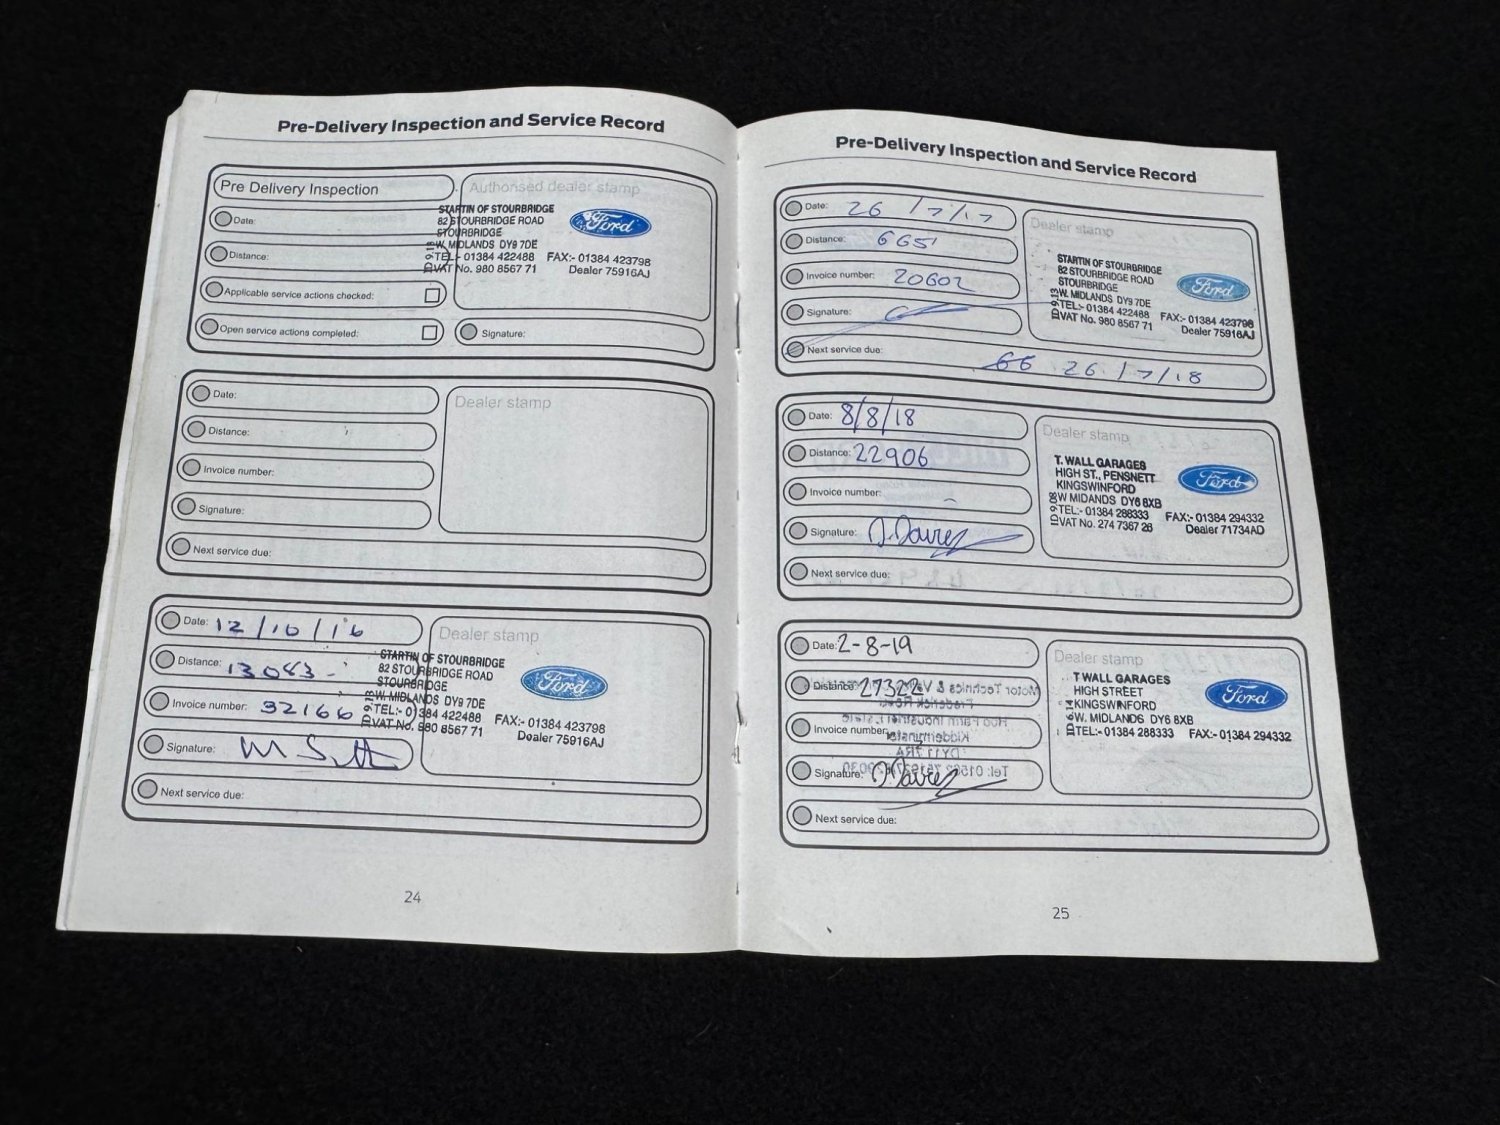 Pre-Delivery Inspection and Service Record
Pre Delivery Inspection
Authorised dealer stamp
Date:
Distance:
Applicable service actions checked:
Open service actions completed:
Signature:
STARTIN OF STOURBRIDGE
82 STOURBRIDGE ROAD
STOURBRIDGE
W. MIDLANDS DY9 7DE
TEL:- 01384 422488 FAX:- 01384 423798
VAT No. 980 8567 71 Dealer 75916AJ
Ford
Date:
Distance:
Invoice number:
Signature:
Next service due:
Dealer stamp
Date: 12/10/16
Distance: 13083
Invoice number: 32166
Signature:
Next service due:
Dealer stamp
STARTIN OF STOURBRIDGE
82 STOURBRIDGE ROAD
STOURBRIDGE
W. MIDLANDS DY9 7DE
TEL:- 01384 422488 FAX:- 01384 423798
VAT No. 980 8567 71 Dealer 75916AJ
Ford
24
Pre-Delivery Inspection and Service Record
Date: 26/7/17
Distance: 6651
Invoice number: 20602
Signature:
Next service due: 26/7/18
Dealer stamp
STARTIN OF STOURBRIDGE
82 STOURBRIDGE ROAD
STOURBRIDGE
W. MIDLANDS DY9 7DE
TEL:- 01384 422488 FAX:- 01384 423798
VAT No. 980 8567 71 Dealer 75916AJ
Ford
Date: 8/8/18
Distance: 22906
Invoice number:
Signature:
Next service due:
Dealer stamp
T. WALL GARAGES
HIGH ST., PENSNETT
KINGSWINFORD
W MIDANDS DY6 8XB
TEL:- 01384 288333 FAX:- 01384 294332
VAT No. 274 7367 26 Dealer 71734AD
Ford
Date: 2-8-19
Distance: 27322
Invoice number:
Signature:
Next service due:
Dealer stamp
T WALL GARAGES
HIGH STREET
KINGSWINFORD
W. MIDLANDS DY6 8XB
TEL:- 01384 288333 FAX:- 01384 294332
Ford
25